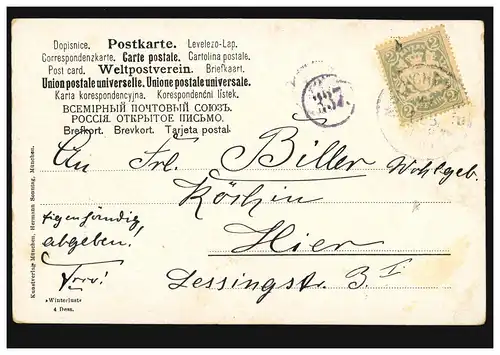 Dopisnice. Postkarte. Levelezo-Lap.
Correspondenzkarte. Carte postale. Cartolina postale.
Post card. Weltpostverein. Briefkaart.
Union postale universelle. Unione postale universale.
Karta korespondencyjna. Korespondenční listek.
ВСЕМІРНЫЙ ПОЧТОВЫЙ СОЮЗЪ.
РОССІЯ. ОТКРЫТОЕ ПИСЬМО.
Brefkort. Brevkort. Tarjeta postal.
237
2 2
2 2
An Frl. Biller Wohlgeb.
Köchin
Eigenhändig
abgeben!
Hier
Lessingstr. 3 I
Kunstverlag München, Hermann Sonntag, München.
»Winterlust«
4 Dess.